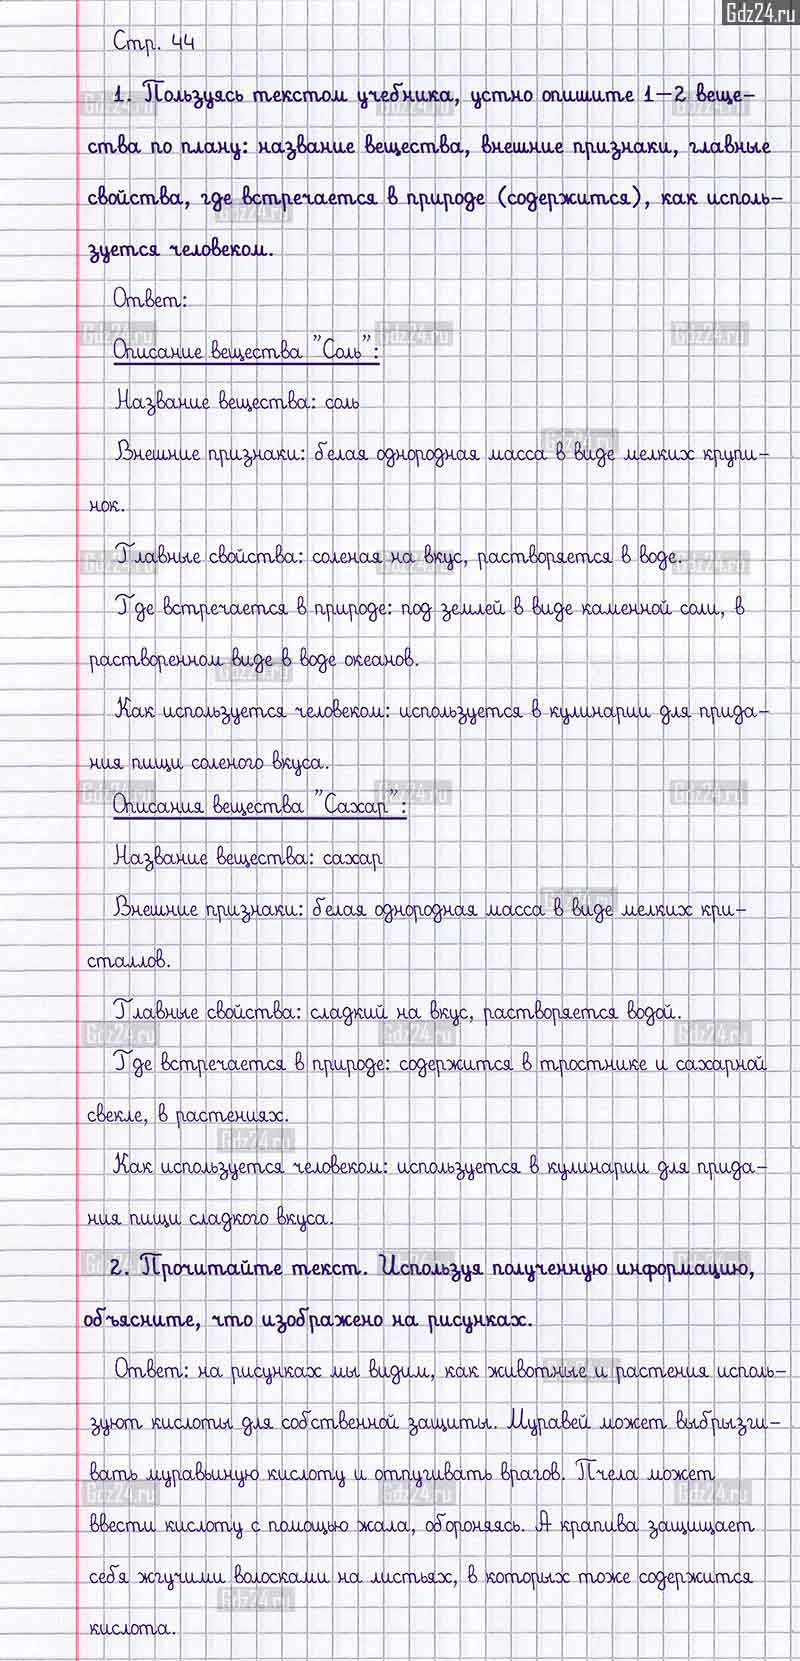 Gdz24.ru
Стр. 44
1. Пользуясь текстом учебника, устно опишите 1-2 веще-
ства по плану: название вещества, внешние признаки, главные
свойства, где встречается в природе (содержится), как исполь-
зуется человеком.
Ответ:
Описание вещества "Соль":
Название вещества: соль
Внешние признаки: белая однородная масса в виде мелких крупи-
нок.
Главные свойства: соленая на вкус, растворяется в воде.
Где встречается в природе: под землей в виде каменной соли, в
растворенном виде в воде океанов.
Как используется человеком: используется в кулинарии для прида-
ния пищи соленого вкуса.
Описания вещества "Сахар":
Название вещества: сахар
Внешние признаки: белая однородная масса в виде мелких кри-
сталлов.
Главные свойства: сладкий на вкус, растворяется водой.
Где встречается в природе: содержится в тростнике и сахарной
свекле, в растениях.
Как используется человеком: используется в кулинарии для прида-
ния пищи сладкого вкуса.
2. Прочитайте текст. Используя полученную информацию,
объясните, что изображено на рисунках.
Ответ: на рисунках мы видим, как животные и растения исполь-
зуют кислоты для собственной защиты. Муравей может выбрызги-
вать муравьиную кислоту и отпугивать врагов. Пчела может
ввести кислоту с помощью жала, обороняясь. А крапива защищает
себя жгучими волосками на листьях, в которых тоже содержится
кислота.